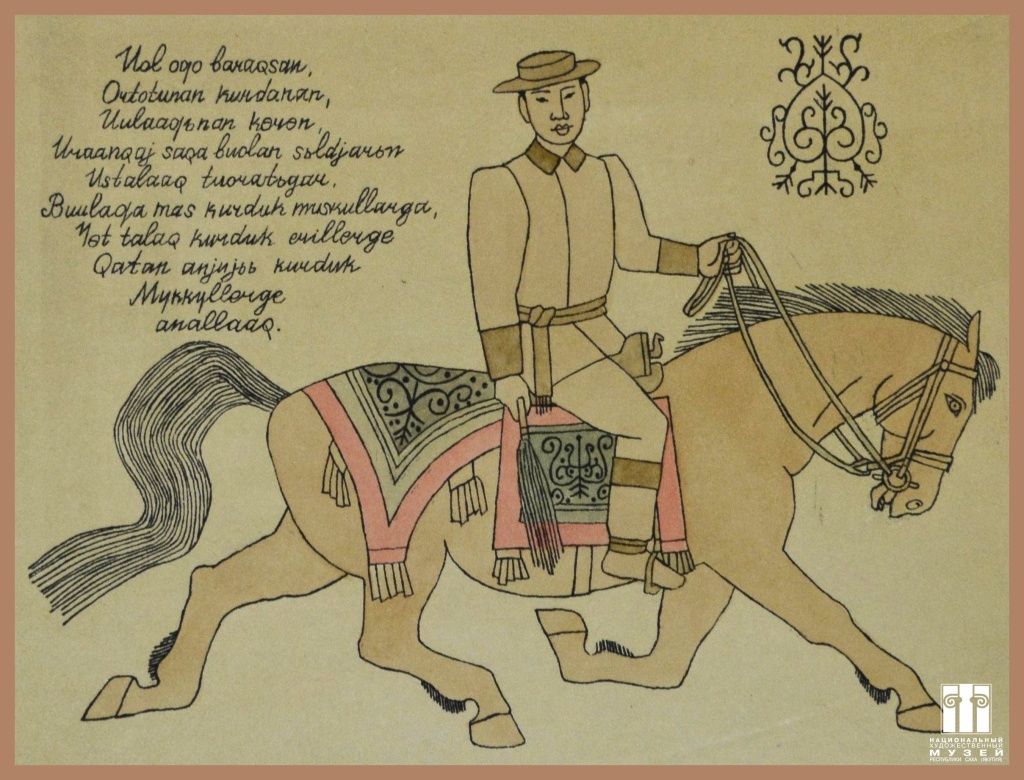 Uol oƣo baraqsan,
Ortotunan kurdanan,
Uulaaƣьnan kөrөn,
Uraanqaj saqa buolan sьldjarьn
Ustalaaq tuoratьgar.
Buulaƣa mas kurduk muskullarga,
Tөt talaq kurduk erillerge
Qatan anjьjьь kurduk
Mykkyllerge
anallaaq.
НАЦИОНАЛЬНЫЙ
ХУДОЖЕСТВЕННЫЙ
МУЗЕЙ
РЕСПУБЛИКИ САХА (ЯКУТИЯ)